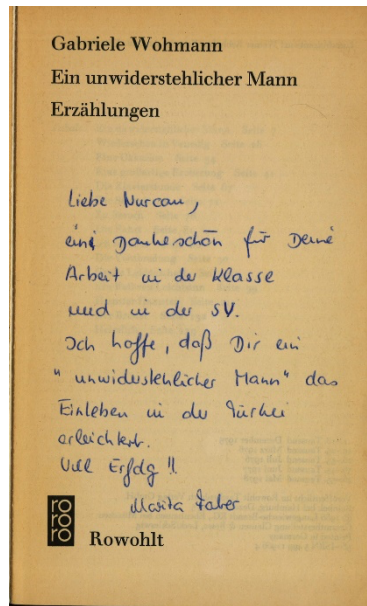 Gabriele Wohmann
Ein unwiderstehlicher Mann
Erzählungen
Liebe Nurcan,
ein Dankeschön für Deine
Arbeit in der Klasse
und in der SV.
Ich hoffe, daß Dir ein
"unwiderstehlicher Mann" das
Einleben in der Türkei
erleichtert.
Viel Erfolg !!
Marita Faber
ro
ro
ro
Rowohlt